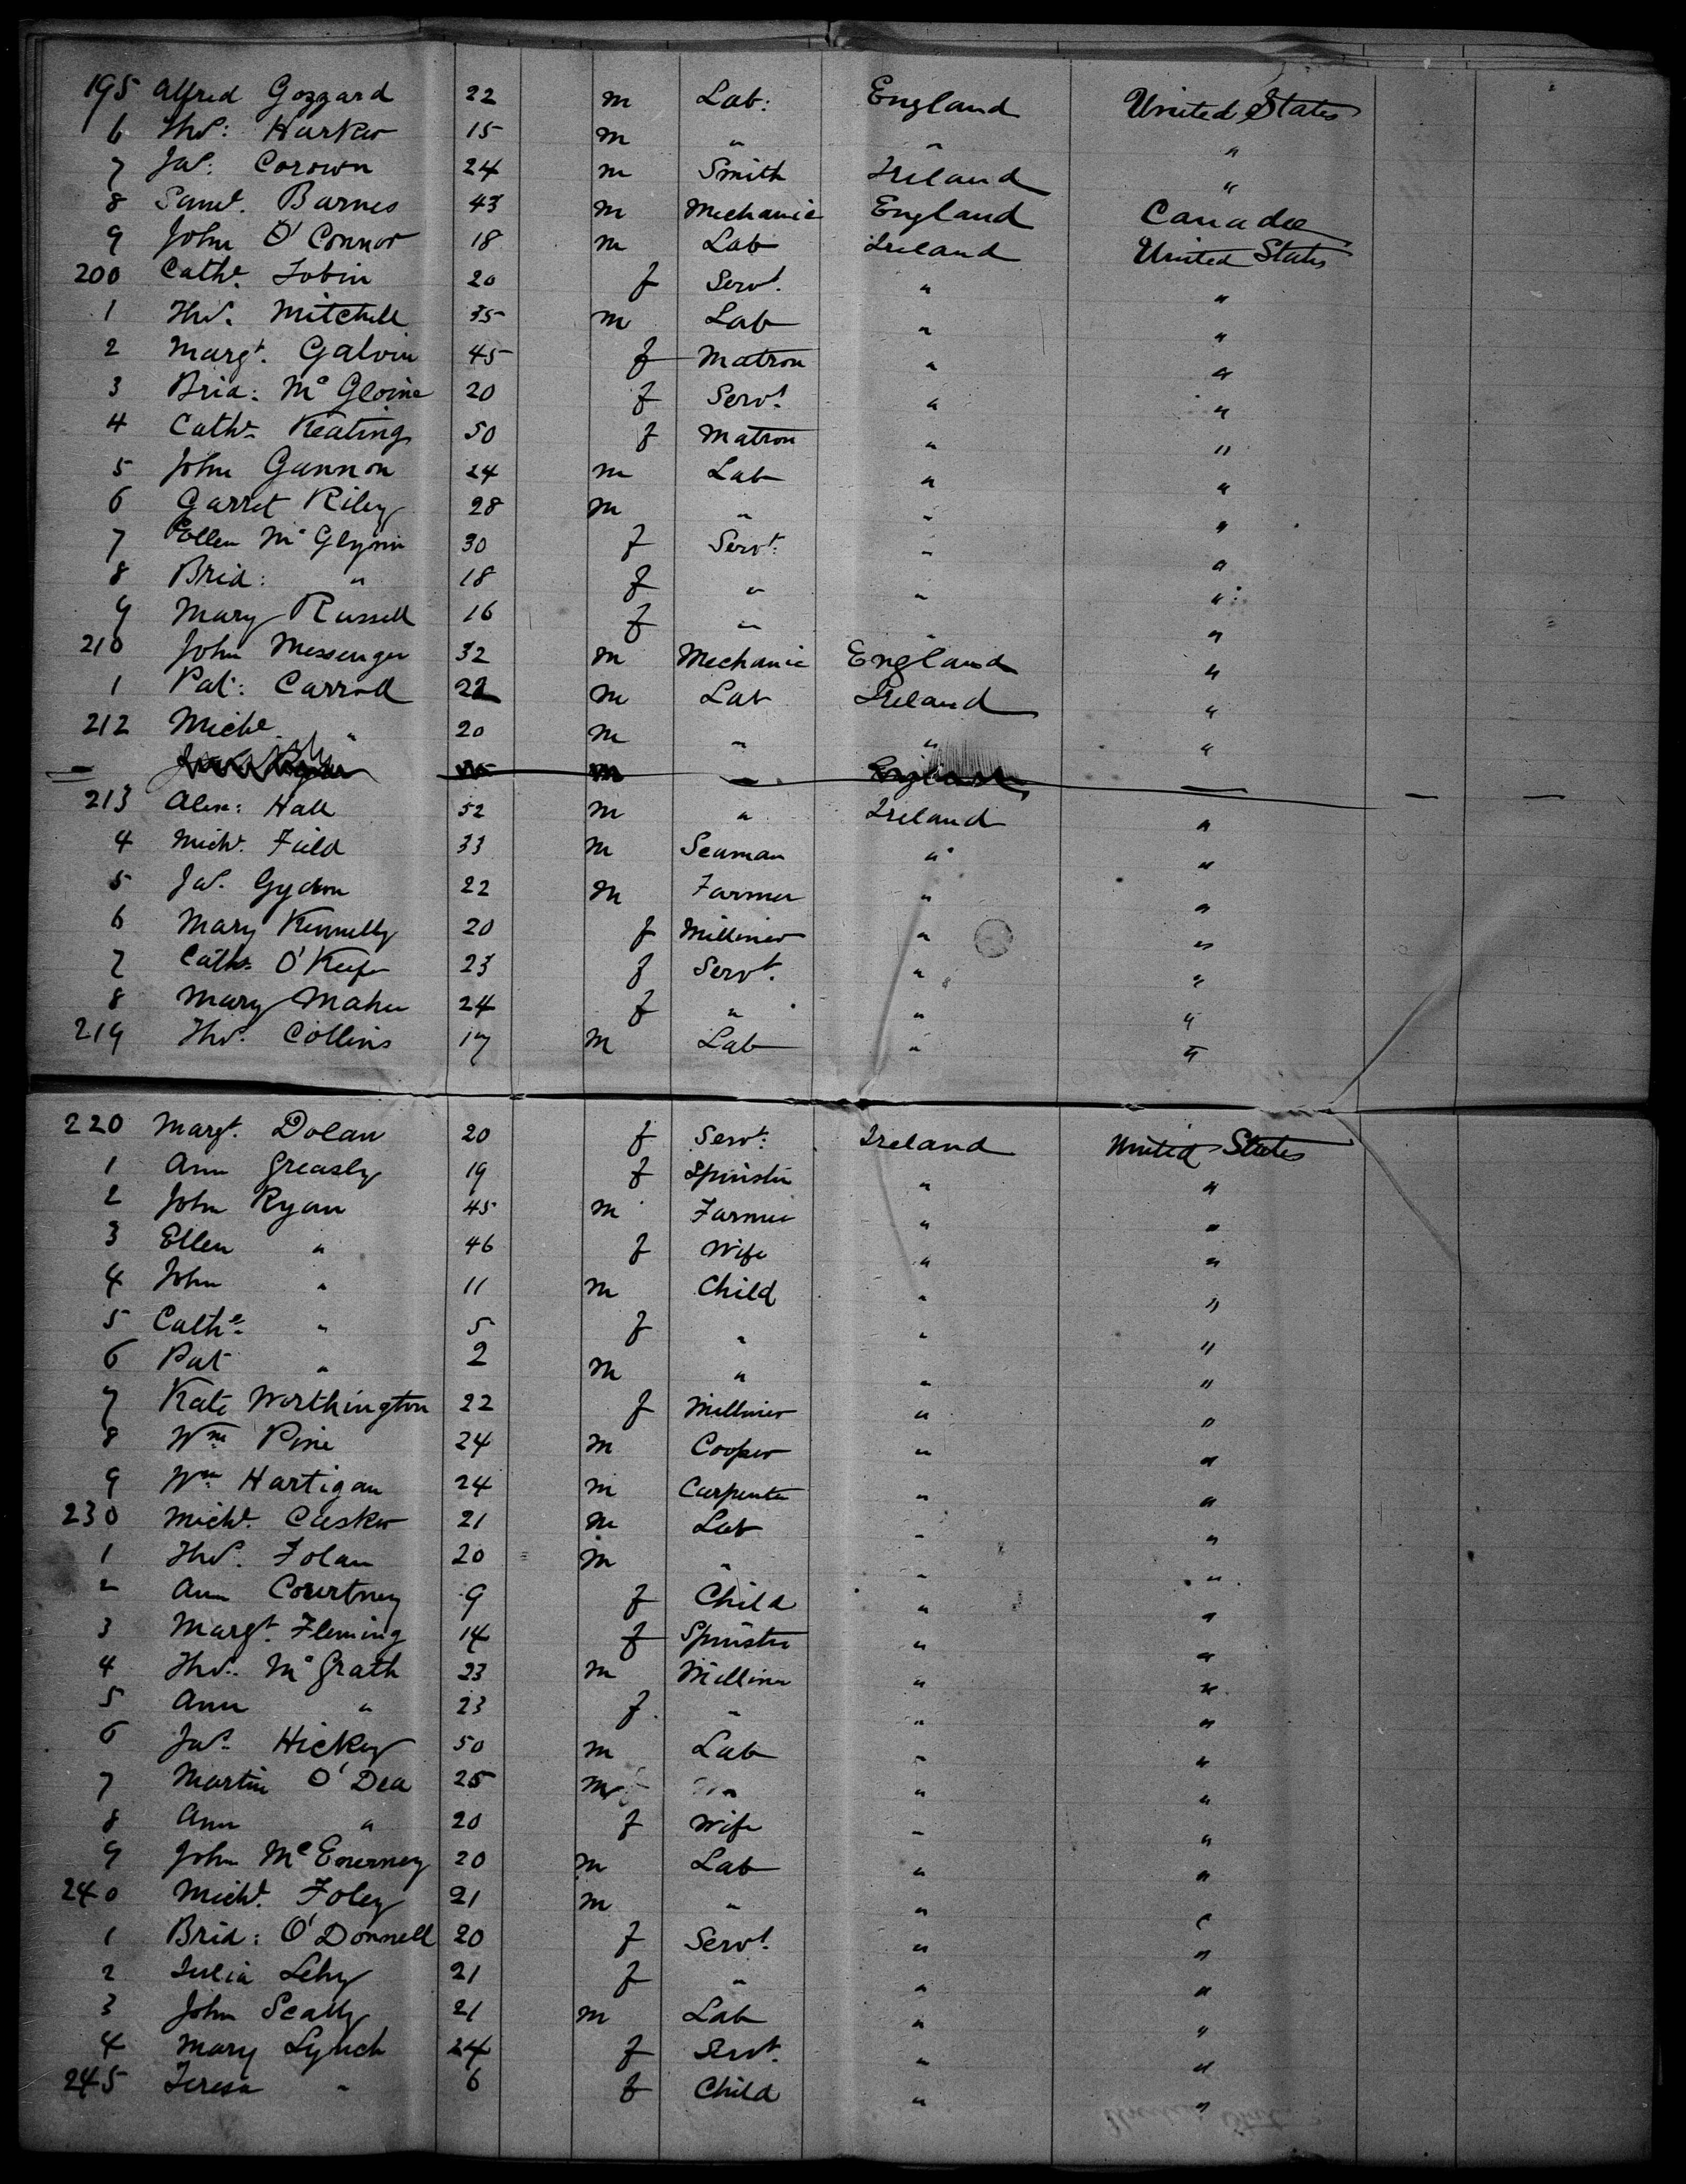 195 Alfred Gozzard 22 m Lab: England United States
6 Thos: Harker 15 m " " "
7 Jas: Corown 24 m Smith Ireland "
8 Saml. Barnes 43 m Mechanic England Canada
9 John O'Connor 18 m Lab Ireland United States
200 Cathe. Tobin 20 f Servt. " "
1 Thos. Mitchell 35 m Lab " "
2 Margt. Galvin 45 f Matron " "
3 Brid: Mc Gloine 20 f Servt. " "
4 Cathe. Keating 50 f Matron " "
5 John Gannon 24 m Lab " "
6 Garret Riley 28 m " " "
7 Ellen Mc Glynn 30 f Servt: " "
8 Brid: " 18 f " " "
9 Mary Russell 16 f " " "
210 John Messenger 32 m Mechanic England "
1 Pat: Carroll 22 m Lab Ireland "
212 Michl. " 20 m " " "
213 Alex: Hall 52 m " Ireland "
4 Michl. Field 33 m Seaman " "
5 Jas. 22 m Farmer " "
6 Mary Kennelly 20 f Milliner " "
7 Cathe. O'Keefe 23 f Servt. " "
8 Mary Maher 24 f " " "
219 Thos. Collins 17 m Lab " "
220 Margt. Dolan 20 f Servt: Ireland United States
1 Ann Greasly 19 f Spinster " "
2 John Ryan 45 m Farmer " "
3 Ellen " 46 f Wife " "
4 John " 11 m Child " "
5 Cathe. " 5 f " " "
6 Pat " 2 m " " "
7 Kate Worthington 22 f Milliner " "
8 Wm. Pine 24 m Cooper " "
9 Wm. Hartigan 24 m Carpenter " "
230 Michl. Casker 21 m Lab " "
1 Thos. Folan 20 m " " "
2 Ann Courtney 9 f Child " "
3 Margt. Fleming 14 f Spinster " "
4 Thos. Mc Grath 23 m Milliner " "
5 Ann " 23 f " " "
6 Jas. Hickey 50 m Lab " "
7 Martin O'Dea 25 m " " "
8 Ann " 20 f Wife " "
9 John Mc Enerney 20 m Lab " "
240 Michl. Foley 21 m " " "
1 Brid: O'Donnell 20 f Servt. " "
2 Julia Lehy 21 f " " "
3 John Scally 21 m Lab " "
4 Mary Lynch 24 f Servt. " "
245 Teresa " 6 f Child " "